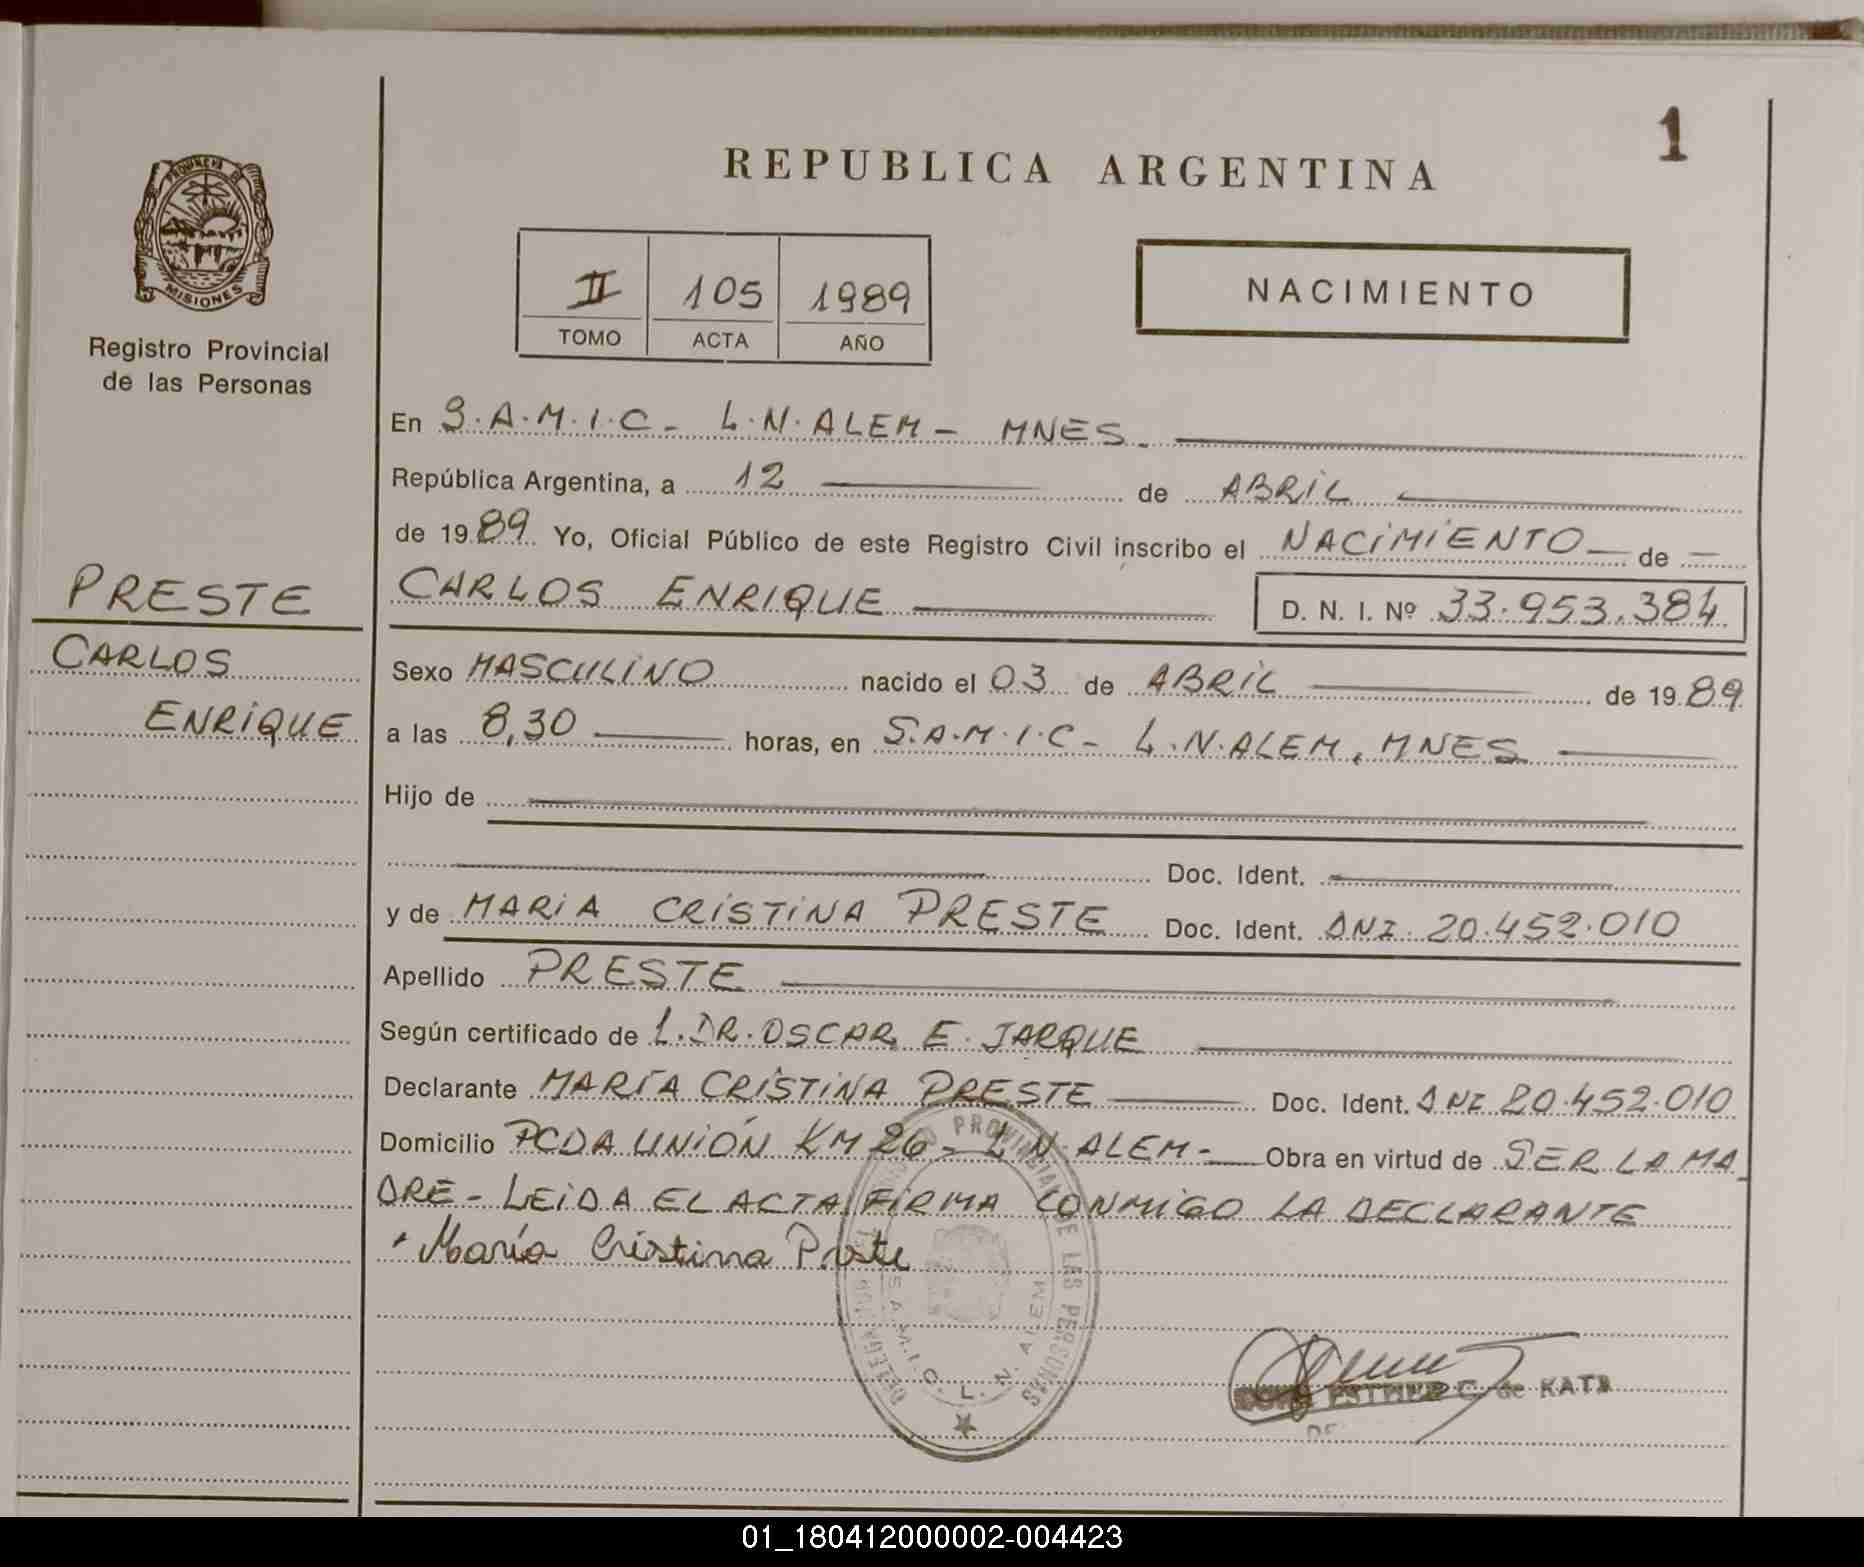 1
REPUBLICA ARGENTINA
PROVINCIA DE
MISIONES
Registro Provincial
de las Personas
II 105 1989
TOMO ACTA AÑO
NACIMIENTO
En S.A.M.I.C- L.N.ALEM- MNES.
República Argentina, a 12 de ABRIL
de 1989. Yo, Oficial Público de este Registro Civil inscribo el NACIMIENTO de
CARLOS ENRIQUE D. N. I. Nº 33.953.384
PRESTE
CARLOS
ENRIQUE
Sexo MASCULINO nacido el 03 de ABRIL de 1989
a las 8,30 horas, en S.A.M.I.C- L.N.ALEM, MNES
Hijo de
Doc. Ident.
y de MARIA CRISTINA PRESTE Doc. Ident. DNI. 20.452.010
Apellido PRESTE
Según certificado de L.DR.OSCAR E. JARQUE
Declarante MARÍA CRISTINA PRESTE Doc. Ident. DNI 20.452.010
Domicilio PCDA UNIÓN KM 26- L.N.ALEM- Obra en virtud de SER LA MA
DRE- LEIDA EL ACTA FIRMA CONMIGO LA DECLARANTE
María Cristina Preste
PROVINCIAL DE LAS PERSONAS
S.A.M.I.C. L. N. ALEM
ESTHER C. de KATZ
01_180412000002-004423